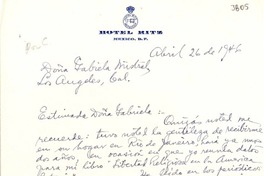 3805
HOTEL RITZ
MEXICO, D.F.
Abril 26 de 1946
Doña Gabriela Mistral
Los Angeles, Cal.
Estimada Doña Gabriela:-
Quizás usted me
recuerde: tuvo usted la gentileza de recibirme
en su hogar en Rio de Janeiro, hará ya unos
dos años, en ocasión en que yo reunía datos
para mi libro: "Libertad Religiosa en la America
leido en los periódicos